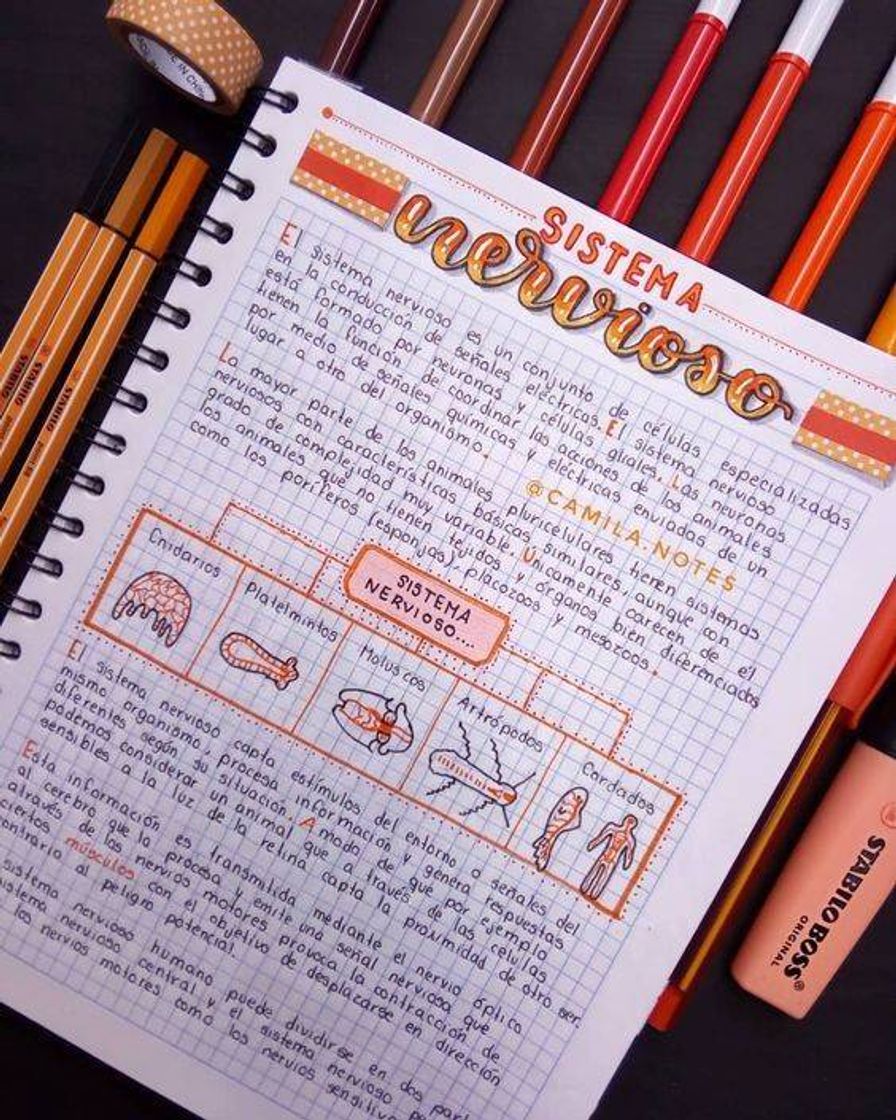 SISTEMA
nervioso
El sistema nervioso es un conjunto de células especializadas
en la conducción de señales eléctricas. El sistema nervioso
está formado por neuronas y células gliales. Las neuronas
tienen la función de coordinar las acciones de los animales
por medio de señales químicas y eléctricas enviadas de un
lugar a otro del organismo.
@CAMILA.NOTES
La mayor parte de los animales pluricelulares tienen sistemas
nerviosos con características básicas similares, aunque con
grado de complejidad muy variable. Únicamente carecen de él
los animales que no tienen tejidos y órganos bien diferenciados
como los poríferos (esponjas), placozoos y mesozoos.
SISTEMA
NERVIOSO...
Cnidarios
Platelmintos
Moluscos
Artrópodos
Cordados
El sistema nervioso capta estímulos del entorno o señales del
mismo organismo, procesa información y genera respuestas
diferentes según su situación. A modo de que por ejemplo
podemos considerar un animal que a través de las células
sensibles a la luz de la retina capta la proximidad de otro ser.
Esta información es transmitida mediante el nervio óptico
al cerebro que la procesa y emite una señal nerviosa que
através de los nervios motores provoca la contracción de
ciertos músculos con el objetivo de desplazarse en dirección
contraria al peligro potencial.
sistema nervioso humano puede dividirse en dos
sistema nervioso central y el sistema nervioso
los nervios motores como los nervios
STABILO BOSS
ORIGINAL
STABILO
STABILO
STABILO